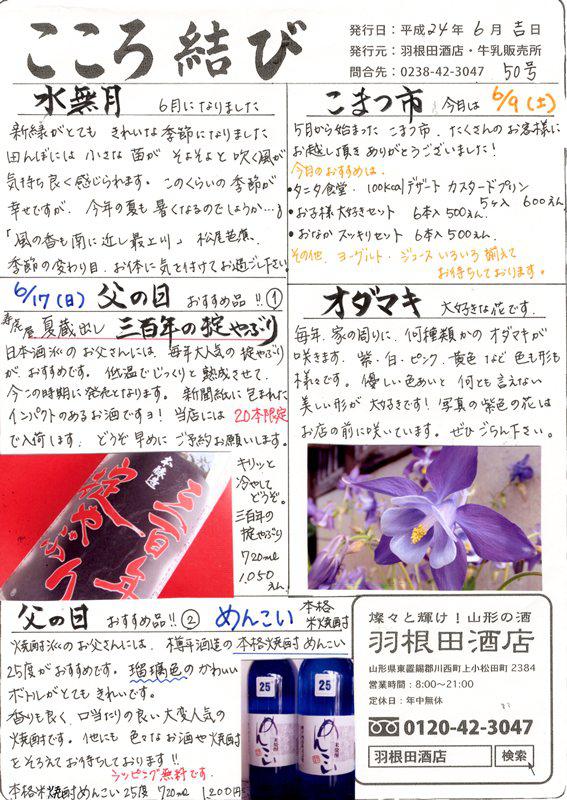 こころ結び
発行日：平成24年6月吉日
発行元：羽根田酒店・牛乳販売所
問合先：0238-42-3047 50号
水無月 6月になりました
新緑がとても きれいな季節になりました
田んぼには 小さな苗が そよそよと吹く風が
気持ち良く感じられます。このくらいの季節が
幸せですが、今年の夏も暑くなるのでしょうか…。
「風の香も南に近し最上川」松尾芭蕉、
季節の変わり目、お体に気を付けてお過ごし下さい。
こまつ市 今月は 6/9(土)
5月から始まった こまつ市、たくさんのお客様に
お越し頂き ありがとうございました！
今月のおすすめは、
・タニタ食堂・100Kcalデザート カスタードプリン
5ヶ入 600えん
・お子様大好きセット 6本入 500えん.
・おなかスッキリセット 6本入 500えん.
その他、ヨーグルト・ジュース いろいろ揃えて
お待ちしております。
6/17(日) 父の日 おすすめ品!!①
寿虎屋 夏蔵出し 三百年の掟やぶり
日本酒派のお父さんには、毎年大人気の掟やぶり
が、おすすめです。低温でじっくりと熟成させて、
今この時期に発売となります。新聞紙に包まれた
インパクトのあるお酒ですヨ！当店には20本限定
で入荷します。どうぞ早めにご予約お願いします。
本醸造
三百年
掟やぶり
キリッと
冷やして
どうぞ。
三百年の
掟やぶり
720ml
1,050
えん
オダマキ 大好きな花です。
毎年、家の周りに、何種類かのオダマキが
咲きます。紫・白・ピンク、黄色など色も形も
様々です。優しい色あいと何とも言えない
美しい形が大好きです！写真の紫色の花は
お店の前に咲いています。ぜひごらん下さい。
父の日 おすすめ品!!② めんこい 本格米焼酎
焼酎派のお父さんには、樽平酒造の本格焼酎めんこい
25度がおすすめです。瑠璃色のかわいい
ボトルがとてもきれいです。
香りも良く、口当たりの良い大変人気の
焼酎です。他にも色々なお酒や焼酎
をそろえてお待ちしております!!
ラッピング無料です。
本格米焼酎めんこい25度 720ml 1,200えん
25
めんこい
25
めんこい
燦々と輝け！山形の酒
羽根田酒店
山形県東置賜郡川西町上小松田町2384
営業時間：8:00〜21:00
定休日：年中無休
0120-42-3047
羽根田酒店 検索